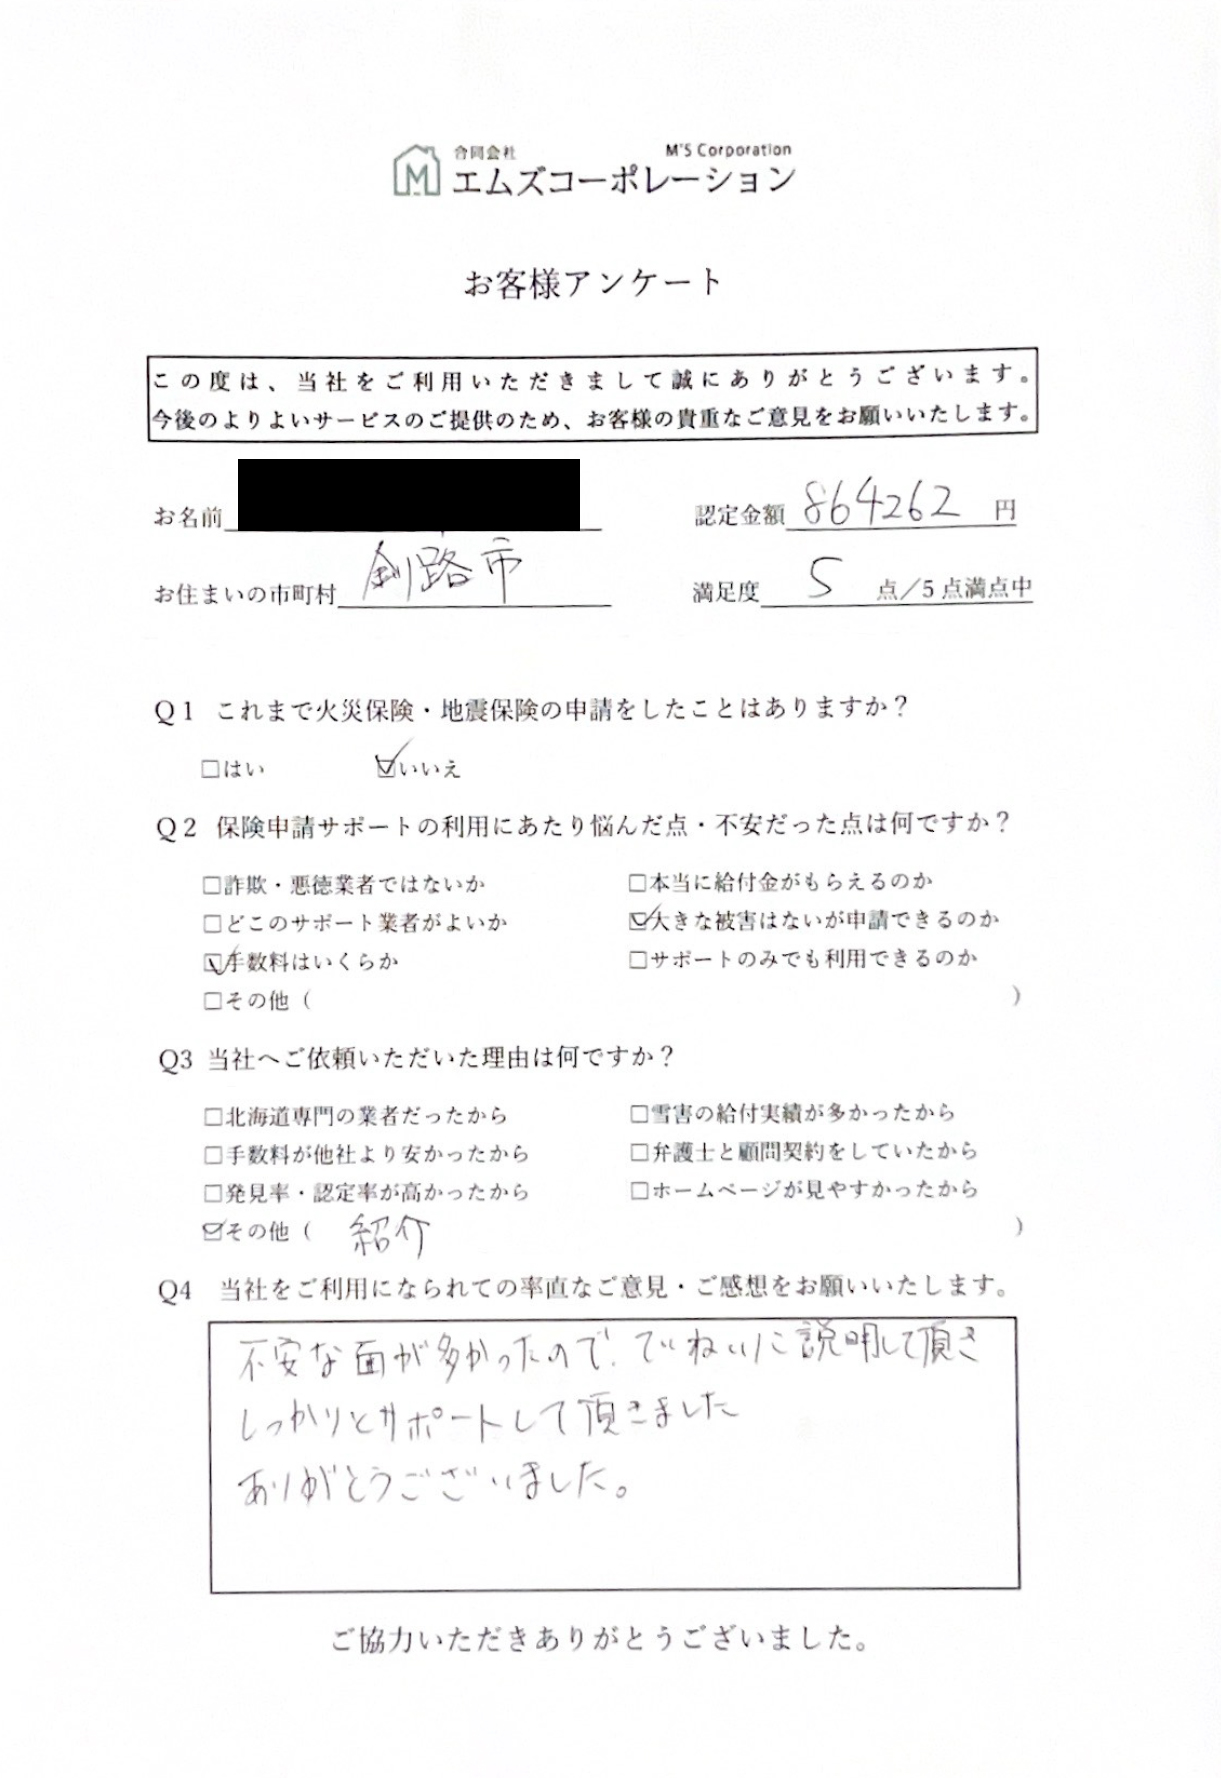 合同会社 M'S Corporation
エムズコーポレーション
お客様アンケート
この度は、当社をご利用いただきまして誠にありがとうございます。
今後のよりよいサービスのご提供のため、お客様の貴重なご意見をお願いいたします。
お名前 認定金額 864262 円
お住まいの市町村 釧路市 満足度 5 点／5点満点中
Q1 これまで火災保険・地震保険の申請をしたことはありますか？
□はい ☑いいえ
Q2 保険申請サポートの利用にあたり悩んだ点・不安だった点は何ですか？
□詐欺・悪徳業者ではないか □本当に給付金がもらえるのか
□どこのサポート業者がよいか ☑大きな被害はないが申請できるのか
☑手数料はいくらか □サポートのみでも利用できるのか
□その他（ ）
Q3 当社へご依頼いただいた理由は何ですか？
□北海道専門の業者だったから □雪害の給付実績が多かったから
□手数料が他社より安かったから □弁護士と顧問契約をしていたから
□発見率・認定率が高かったから □ホームページが見やすかったから
☑その他（ 紹介 ）
Q4 当社をご利用になられての率直なご意見・ご感想をお願いいたします。
不安な面が多かったので、ていねいに説明して頂き
しっかりとサポートして頂きました
ありがとうございました。
ご協力いただきありがとうございました。